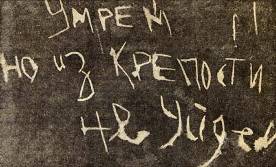 Умрём
но из крепости
не уйдем